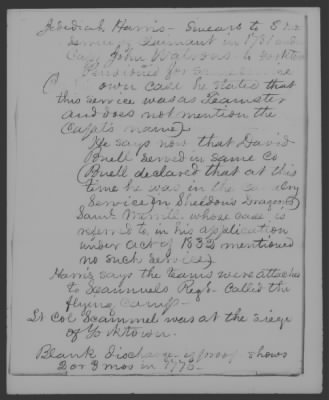 Jebediah Harris - Swears to 3 mos
service Teamst in 1781 under
Capt John Watsons - to
Pensioned for same
(in own case he stated that
this service was as Teamster
and does not mention the
Capt's name).
He says now that David
Buell served in same Co
(Buell declared that at this
time he was in the
service in Sheldon's Dragoons)
Saml Merrill whose case is
referred to in his application
under act of 1832 mentioned
no such service)
Harris says the teams were attached
to Scammel's Regt - called the
flying camp -
Lt Col Scammel was at the siege
of Yorktown.
Blank discharge - shows
2 or 3 mos in